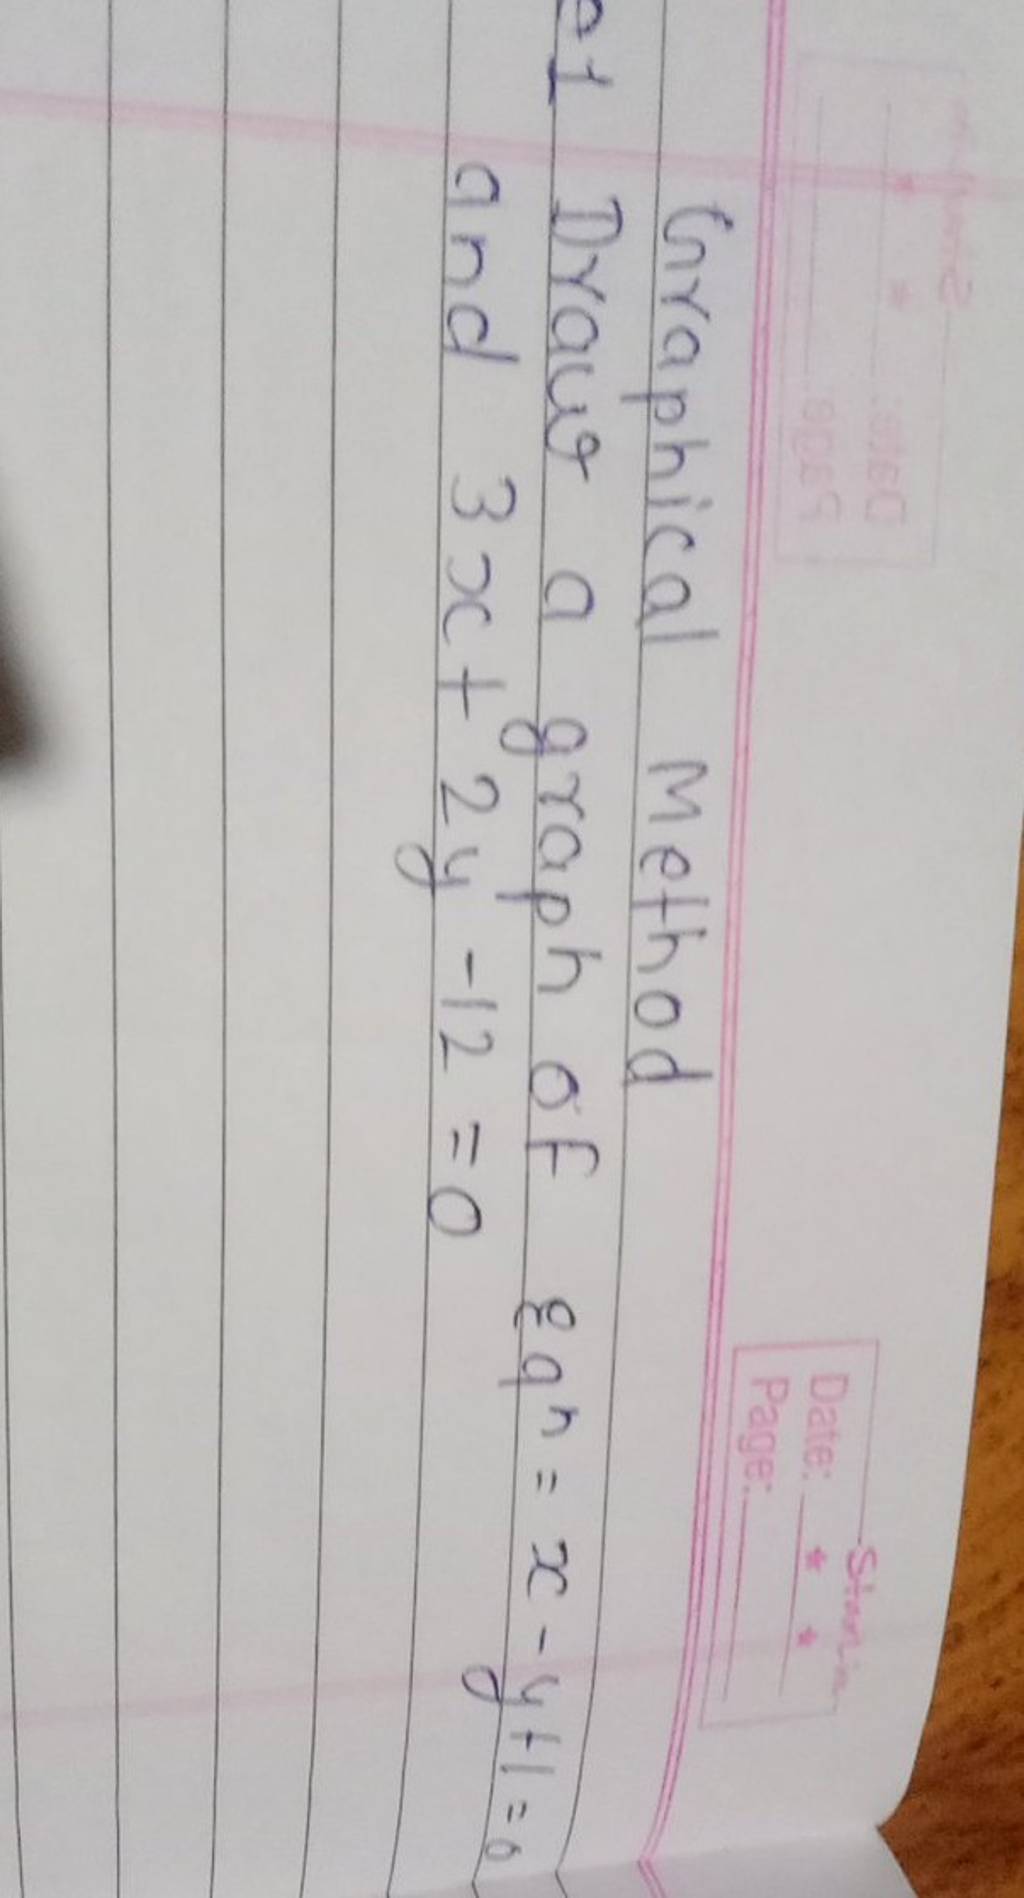 Date:
Page:
Graphical Method
Draw a graph of eqn = x - y + 1 = 0
and 3x + 2y - 12 = 0